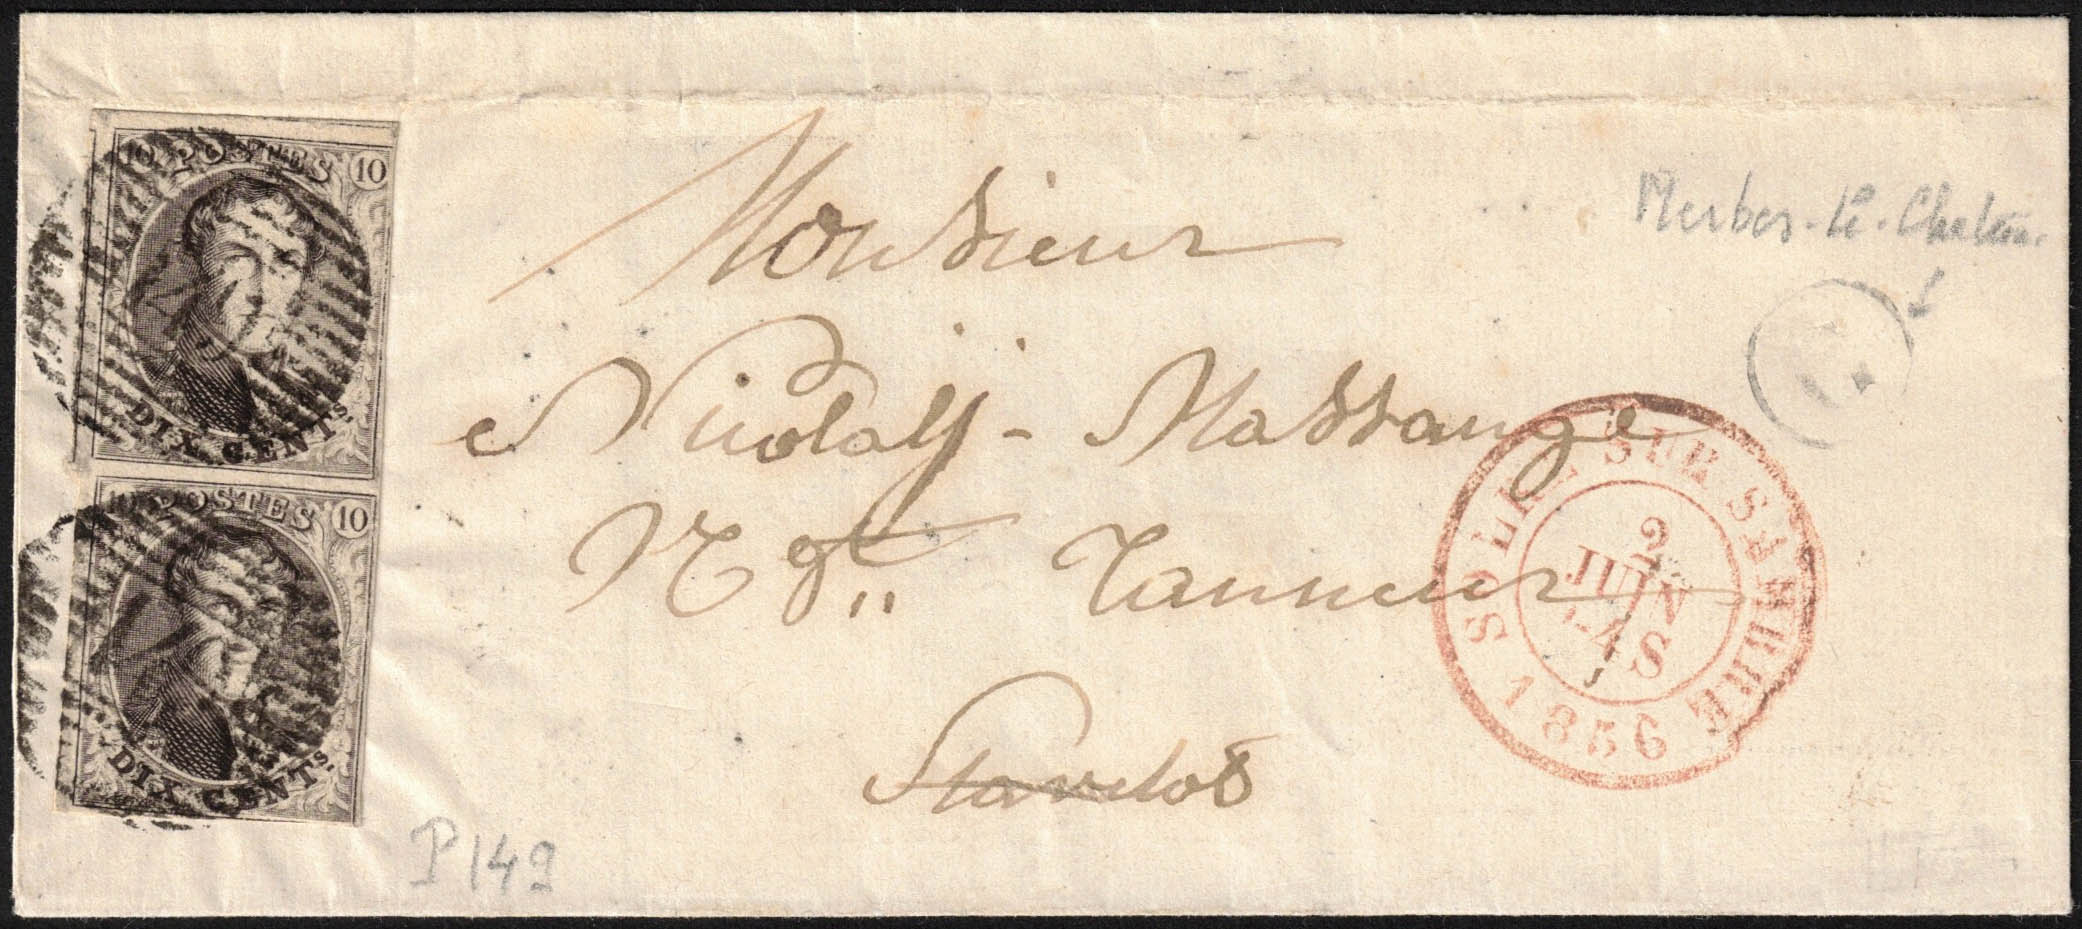 10 POSTES 10
DIX CENTS.
10 POSTES 10
DIX CENTS.
Monsieur
Nicolaÿ-Massange
Ngt. Tanneur
Stavelot
Merbes-le-Château
SOLRE SUR SAMBRE
2
JUIN
4-S
1856
P149